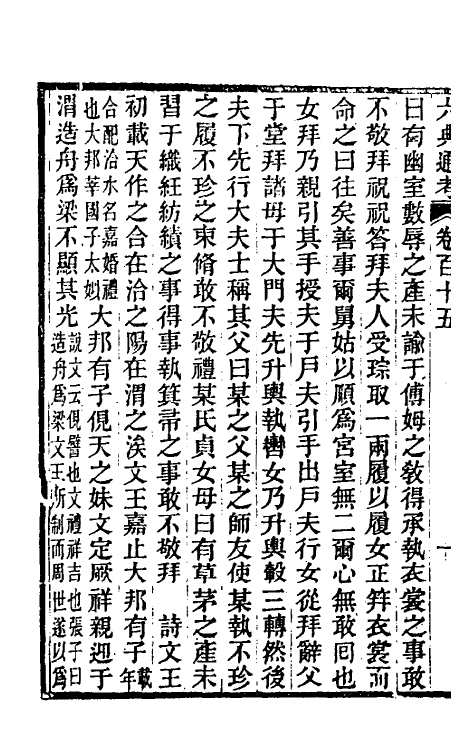 六典通考 卷百十五 一
曰有幽室數辱之產未諭于傅姆之敎得承執衣裳之事敢
不敬拜祝祝答拜夫人受琮取一兩履以履女正笄衣裳而
命之曰往矣善事爾舅姑以順爲宮室無二爾心無敢回也
女拜乃親引其手授夫于戶夫引手出戶夫行女從拜辭父
于堂拜諸母于大門夫先升輿執轡女乃升輿轂三轉然後
夫下先行大夫士稱其父曰某之父某之師友使某執不珍
之履不珍之束脩敢不敬禮某氏貞女母曰有草茅之產未
習于織紝紡績之事得事執箕帚之事敢不敬拜 詩文王
初載天作之合在洽之陽在渭之涘文王嘉止大邦有子載年
合配洽水名嘉婚禮也大邦莘國子太姒大邦有子俔天之妹文定厥祥親迎于
渭造舟爲梁不顯其光說文云俔譬也文禮祥吉也張子曰造舟爲梁文王所制而周世遂以爲